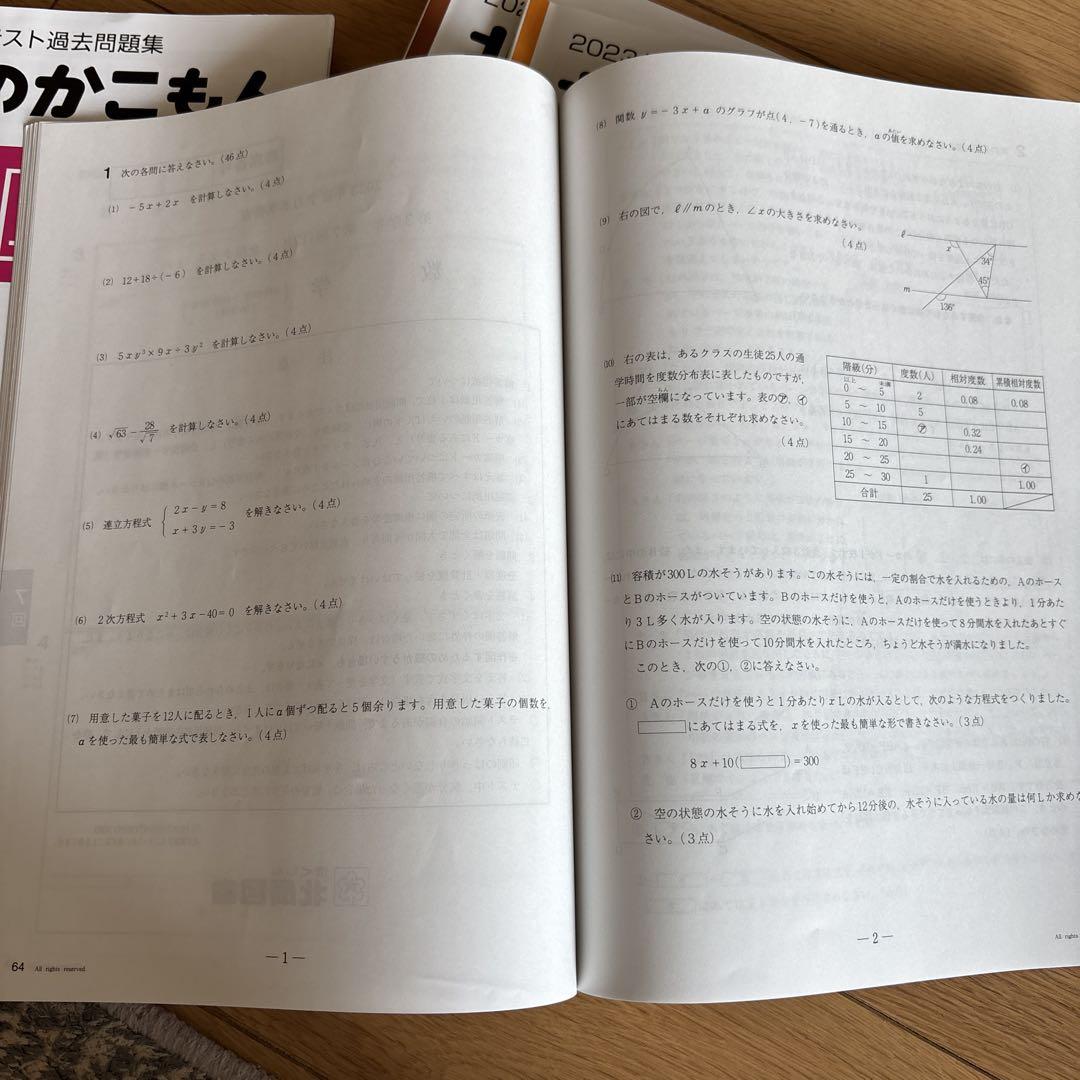 テスト過去問題集
のかこもん
2023
1 次の各問に答えなさい。(46点)
(1) －5x＋2x を計算しなさい。(4点)
(2) 12＋18÷(－6) を計算しなさい。(4点)
(3) 5xy³×9x÷3y² を計算しなさい。(4点)
(4) √63－28/√7 を計算しなさい。(4点)
(5) 連立方程式 { 2x－y＝8 を解きなさい。(4点)
x＋3y＝－3
(6) 2次方程式 x²＋3x－40＝0 を解きなさい。(4点)
(7) 用意した菓子を12人に配るとき，1人にa個ずつ配ると5個余ります。用意した菓子の個数を，
aを使った最も簡単な式で表しなさい。(4点)
64 All rights reserved
―1―
(8) 関数 y＝－3x＋a のグラフが点(4，－7)を通るとき，aの値を求めなさい。(4点)
(9) 右の図で，ℓ//mのとき，∠xの大きさを求めなさい。
(4点)
ℓ
x
34°
45°
m
136°
(10) 右の表は，あるクラスの生徒25人の通
学時間を度数分布表に表したものですが，
一部が空欄になっています。表の㋐，㋑
にあてはまる数をそれぞれ求めなさい。
(4点)
階級(分) 度数(人) 相対度数 累積相対度数
以上 未満
0 ～ 5 2 0.08 0.08
5 ～ 10 5
10 ～ 15 ㋐ 0.32
15 ～ 20 0.24
20 ～ 25 ㋑
25 ～ 30 1 1.00
合計 25 1.00
(11) 容積が300Lの水そうがあります。この水そうには，一定の割合で水を入れるための，Aのホース
とBのホースがついています。Bのホースだけを使うと，Aのホースだけを使うときより，1分あた
り3L多く水が入ります。空の状態の水そうに，Aのホースだけを使って8分間水を入れたあとすぐ
にBのホースだけを使って10分間水を入れたところ，ちょうど水そうが満水になりました。
このとき，次の①，②に答えなさい。
① Aのホースだけを使うと1分あたりxLの水が入るとして，次のような方程式をつくりました。
にあてはまる式を，xを使った最も簡単な形で書きなさい。(3点)
8x＋10( )＝300
② 空の状態の水そうに水を入れ始めてから12分後の，水そうに入っている水の量は何Lか求めな
さい。(3点)
―2―
All rights